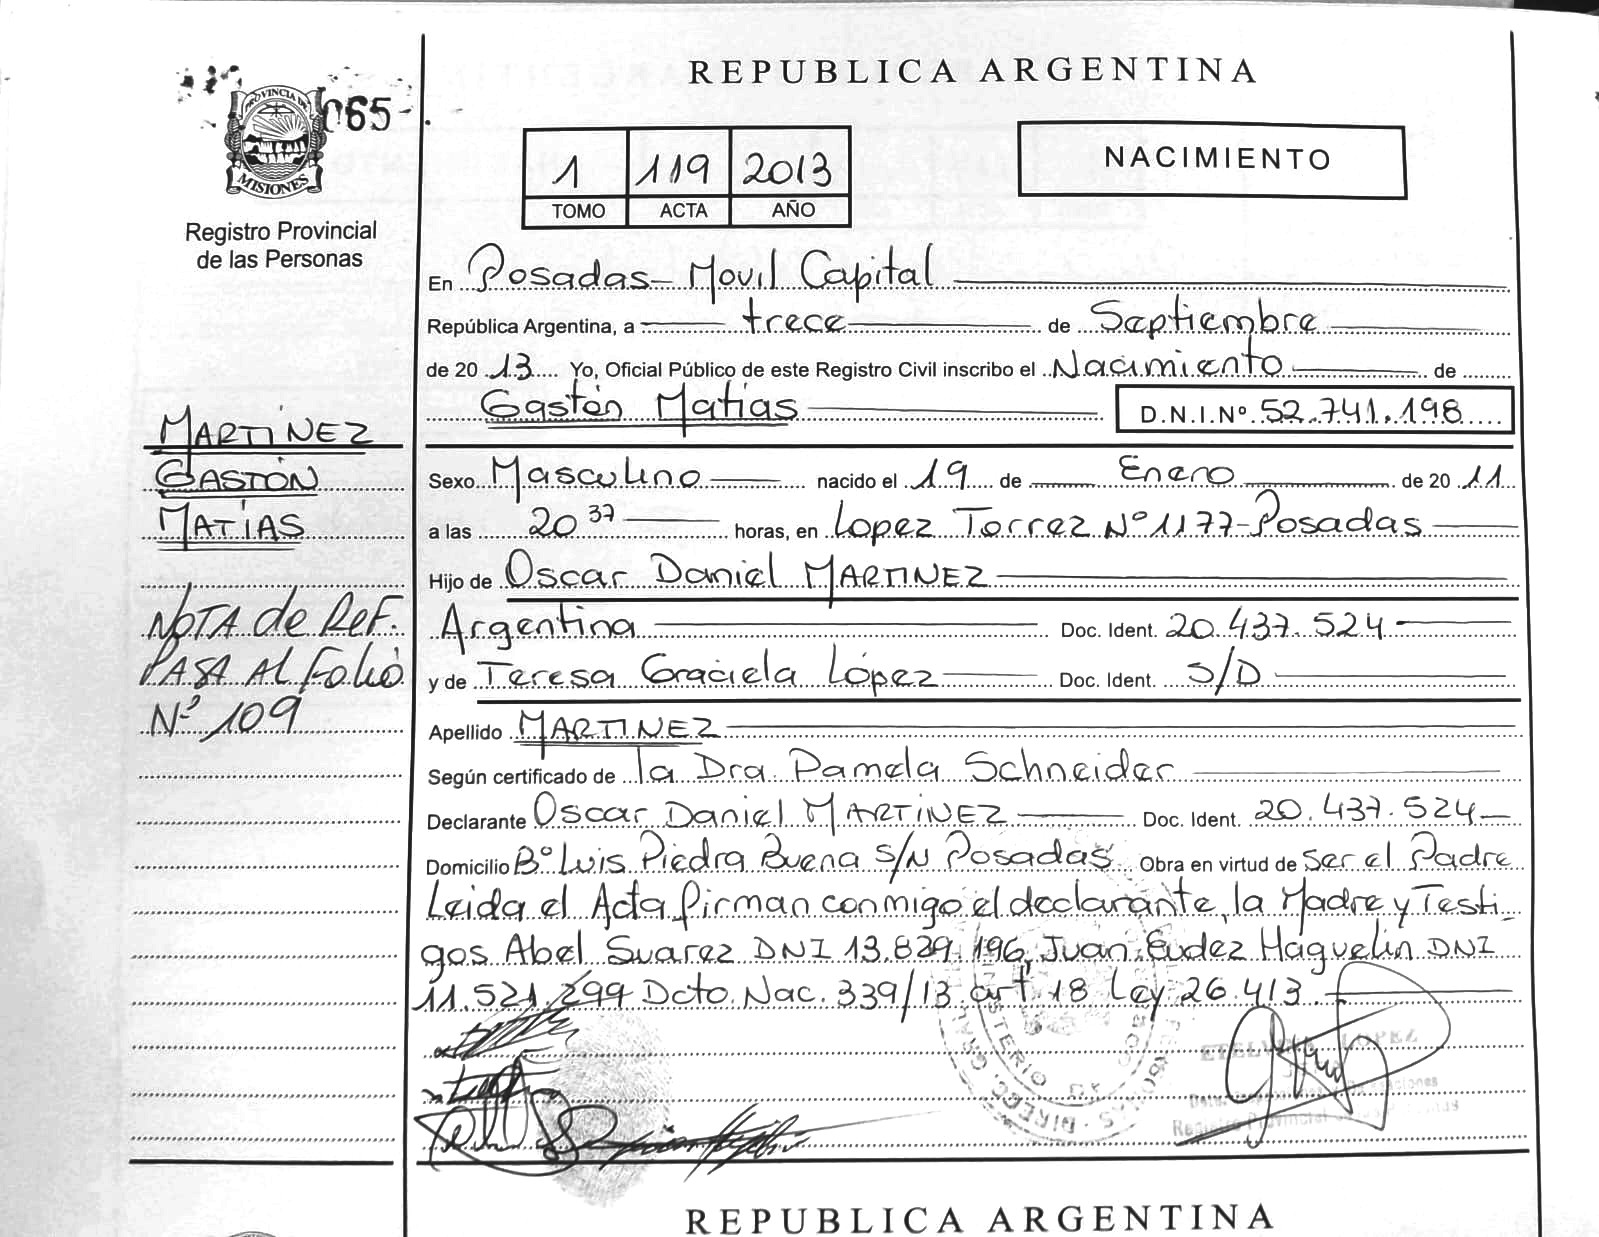 REPUBLICA ARGENTINA
PROVINCIA DE
MISIONES
065
Registro Provincial
de las Personas
1 119 2013
TOMO ACTA AÑO
NACIMIENTO
En Posadas - Movil Capital
República Argentina, a trece de Septiembre
de 2013 Yo, Oficial Público de este Registro Civil inscribo el Nacimiento de
Gastón Matías D.N.I.Nº 52.741.198
MARTíNEZ
GASTÓN
MATíAS
NOTA de Ref.
PASA Al Folio
Nº 109
Sexo Masculino nacido el 19 de Enero de 2011
a las 20 37 horas, en Lopez Torrez Nº 1177 - Posadas
Hijo de Oscar Daniel MARTINEZ
Argentina Doc. Ident. 20.437.524
y de Teresa Graciela López Doc. Ident. S/D
Apellido MARTINEZ
Según certificado de la Dra Pamela Schneider
Declarante Oscar Daniel MARTíNEZ Doc. Ident. 20.437.524
Domicilio Bº Luis Piedra Buena S/N Posadas Obra en virtud de ser el Padre
Leida el Acta firman conmigo el declarante, la Madre y Testi-
gos Abel Suarez DNI 13.829.196, Juan Eudez Haguelin DNI
11.521.299 Dcto. Nac. 339/13 art. 18 Ley 26.413
LOPEZ
REPUBLICA ARGENTINA